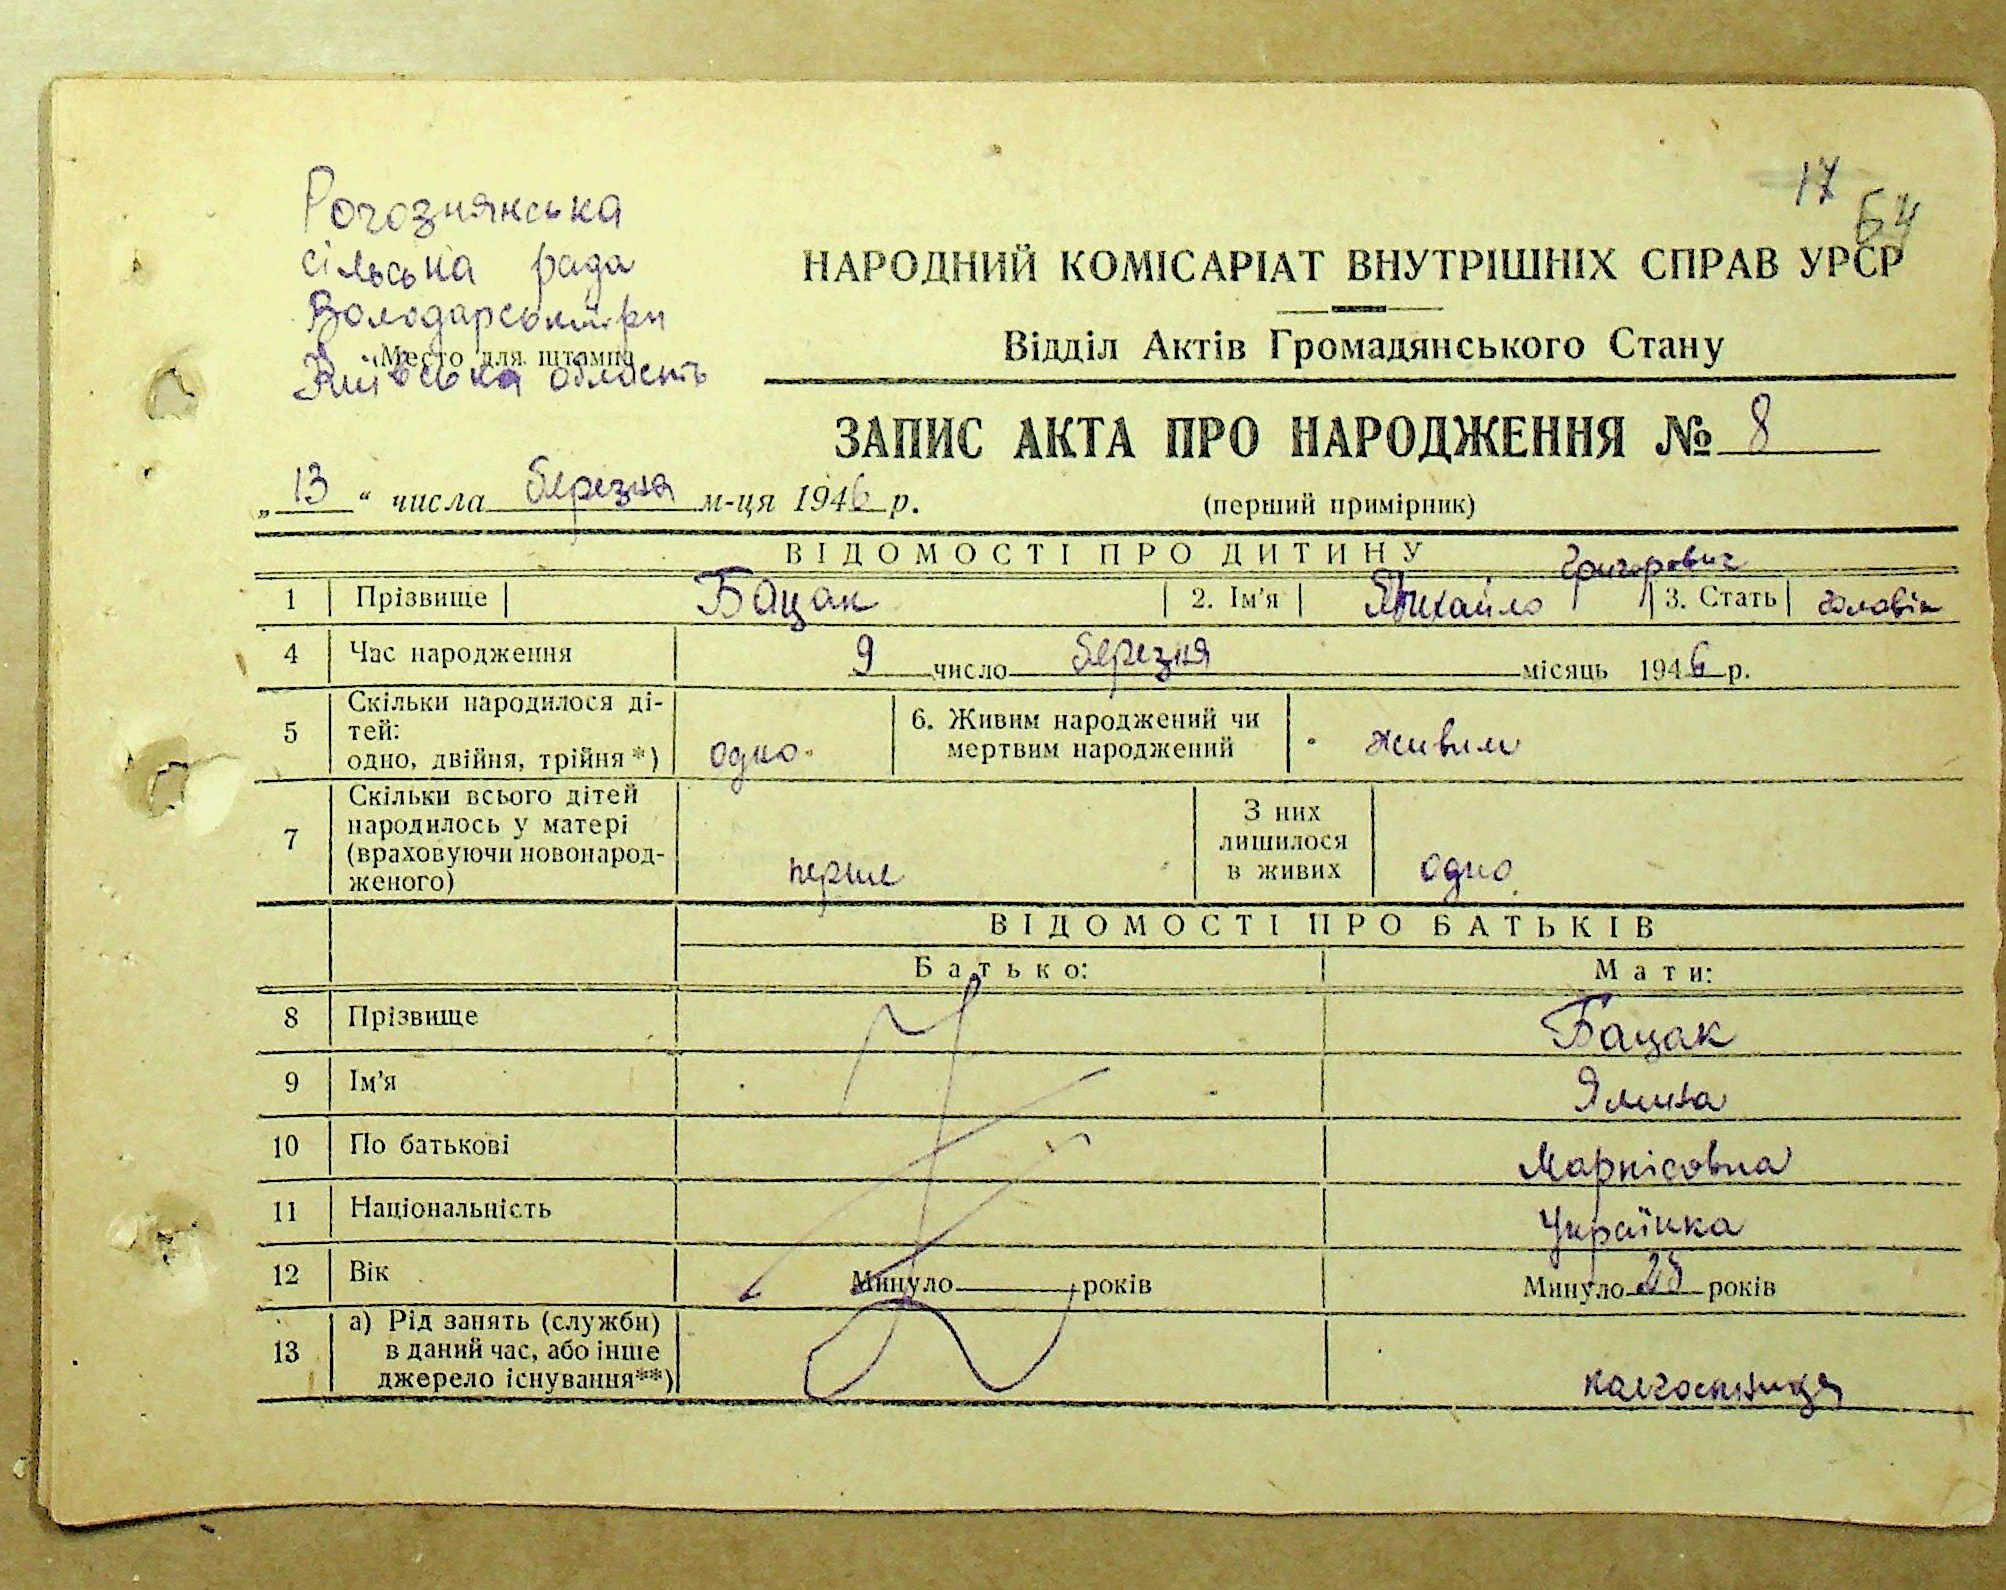 17
64
Рогознянська
сільська рада
Володарський р-н
Место для штампа
Київська область
НАРОДНИЙ КОМІСАРІАТ ВНУТРІШНІХ СПРАВ УРСР
Відділ Актів Громадянського Стану
ЗАПИС АКТА ПРО НАРОДЖЕННЯ № 8
„13“ числа березня м-ця 1946 р.
(перший примірник)
ВІДОМОСТІ ПРО ДИТИНУ
Григорович
1 Прізвище Бацак 2. Ім'я Михайло 3. Стать чоловік
4 Час народження 9 число березня місяць 1946 р.
5 Скільки народилося ді-
тей:
одно, двійня, трійня *) одно
6. Живим народжений чи
мертвим народжений живим
7 Скільки всього дітей
народилось у матері
(враховуючи новонарод-
женого) перше
З них
лишилося
в живих одно
ВІДОМОСТІ ПРО БАТЬКІВ
Батько: Мати:
8 Прізвище Бацак
9 Ім'я Ялина
10 По батькові Маркісовна
11 Національність Українка
12 Вік Минуло років Минуло років
13 а) Рід занять (служби)
в даний час, або інше
джерело існування**) колгоспниця